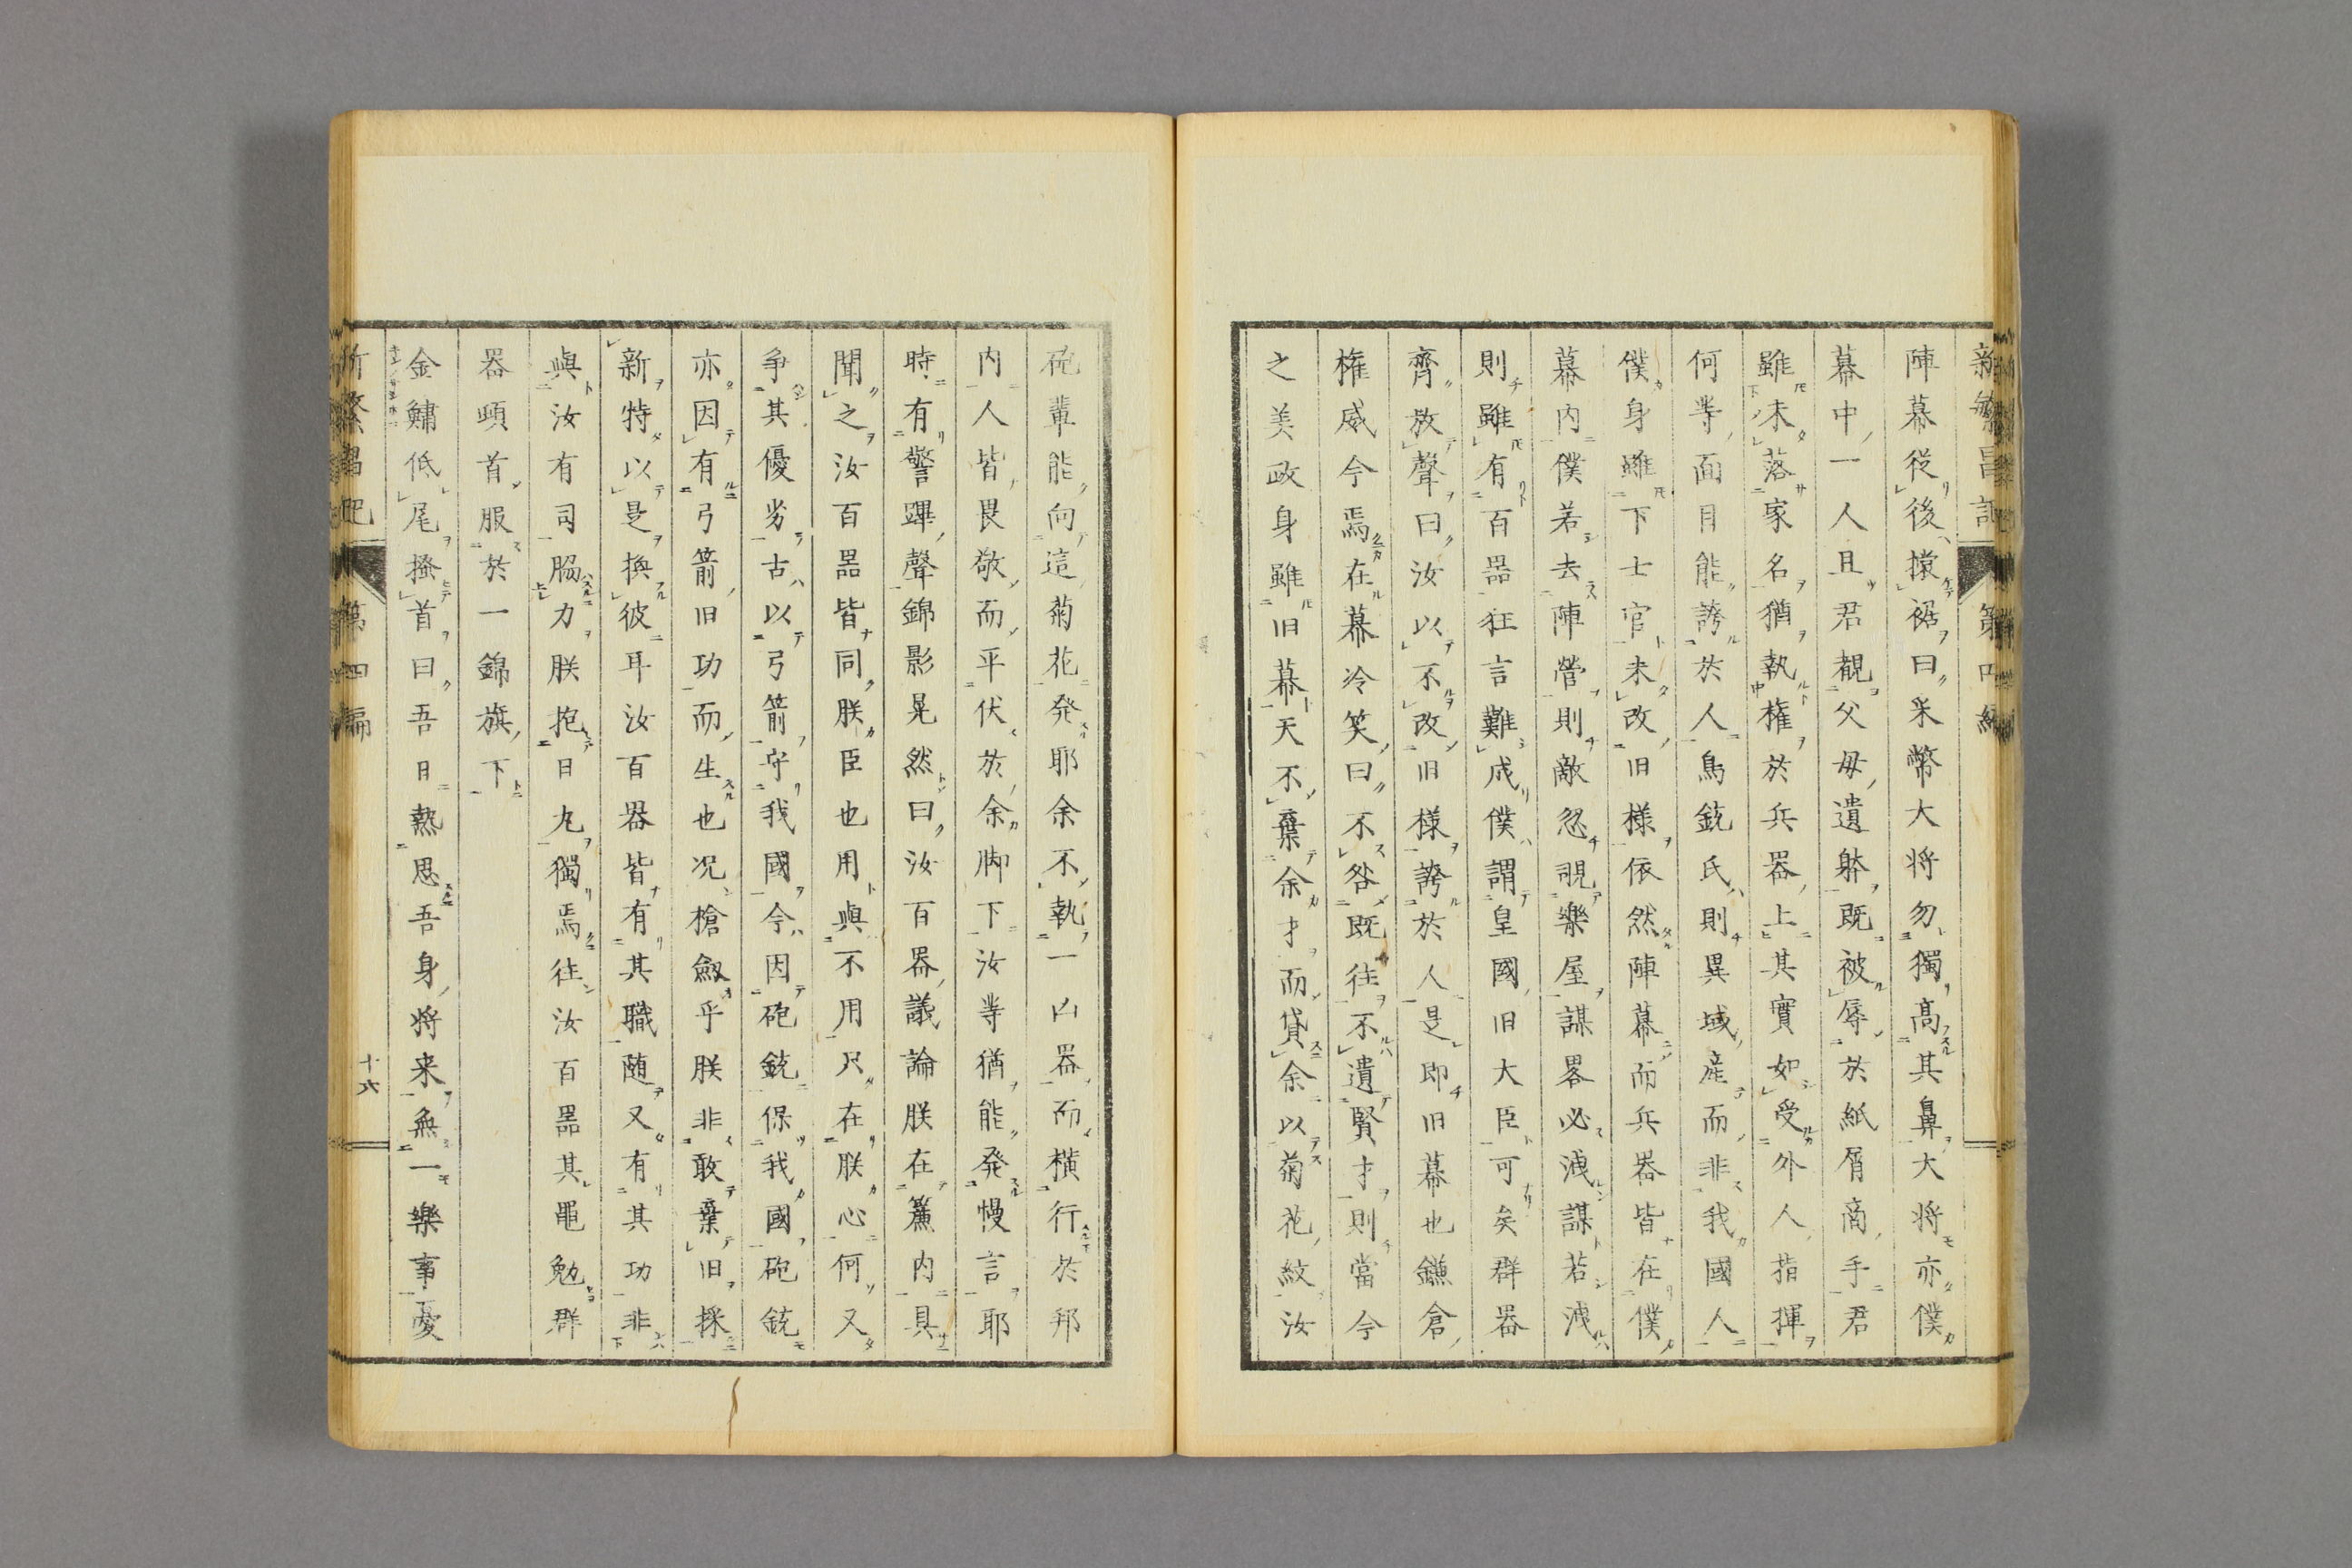 新繁昌記 第四編
陣幕從後攩裾曰釆幣大将勿獨高其鼻大将亦僕
幕中一人且君覩父母遺躰既被辱於紙屑商手君
雖未落家名猶執権於兵器上其實如受外人指揮
何等面目能誇於人鳥銃氏則異域産而非我國人
僕身雖下士官未改旧様依然陣幕而兵器皆在僕
幕内僕若去陣營則敵忽覗樂屋謀畧必洩謀若洩
則雖有百噐狂言難成僕謂皇國旧大臣可矣群器
齊放聲曰汝以不改旧様誇於人是即旧幕也鎌倉
権威今焉在幕冷笑曰不咎既往不遺賢才則當今
之美政身雖旧幕天不棄余才而貸余以菊花紋汝
砲輩能向這菊花発耶余不執一凶器而横行於邦
内人皆畏敬而平伏於余脚下汝等猶能発慢言耶
時有警蹕聲錦影晃然曰汝百器議論朕在簾内具
聞之汝百噐皆同朕臣也用與不用只在朕心何又
爭其優劣古以弓箭守我國今因砲銃保我國砲銃
亦因有弓箭旧功而生也况槍劔乎朕非敢棄旧採
新特以是換彼耳汝百器皆有其職随又有其功非
與汝有司脇力朕抱日丸獨焉往汝百噐其黽勉群
器頓首服於一錦旗下
金鱐低尾搔首曰吾日熟思吾身将来無一樂事憂
新繁昌記 第四編 十六